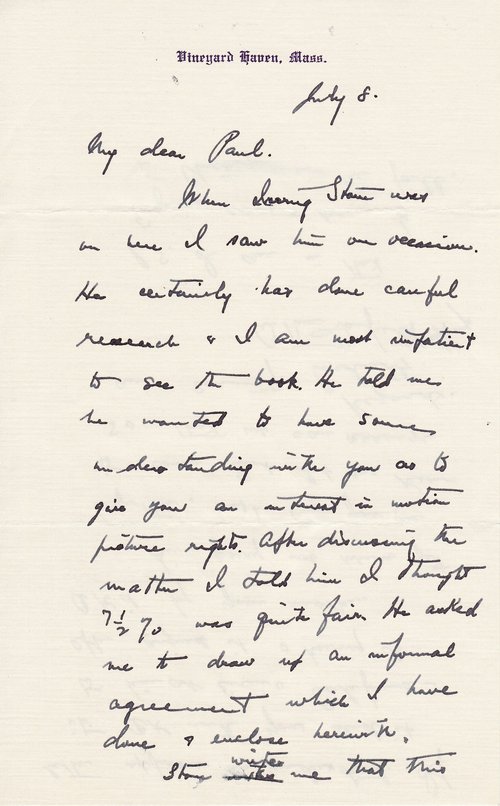 Vineyard Haven, Mass.
July 8.
My dear Paul.
When Irving Stone was
on here I saw him on occasion.
He certainly has done careful
research & I am most impatient
to see the book. He told me
he wanted to have some
understanding with you as to
give you an interest in motion
picture rights. After discussing the
matter I told him I thought
7½% was quite fair. He asked
me to draw up an informal
agreement which I have
done & enclose herewith.
Stone writes me that this